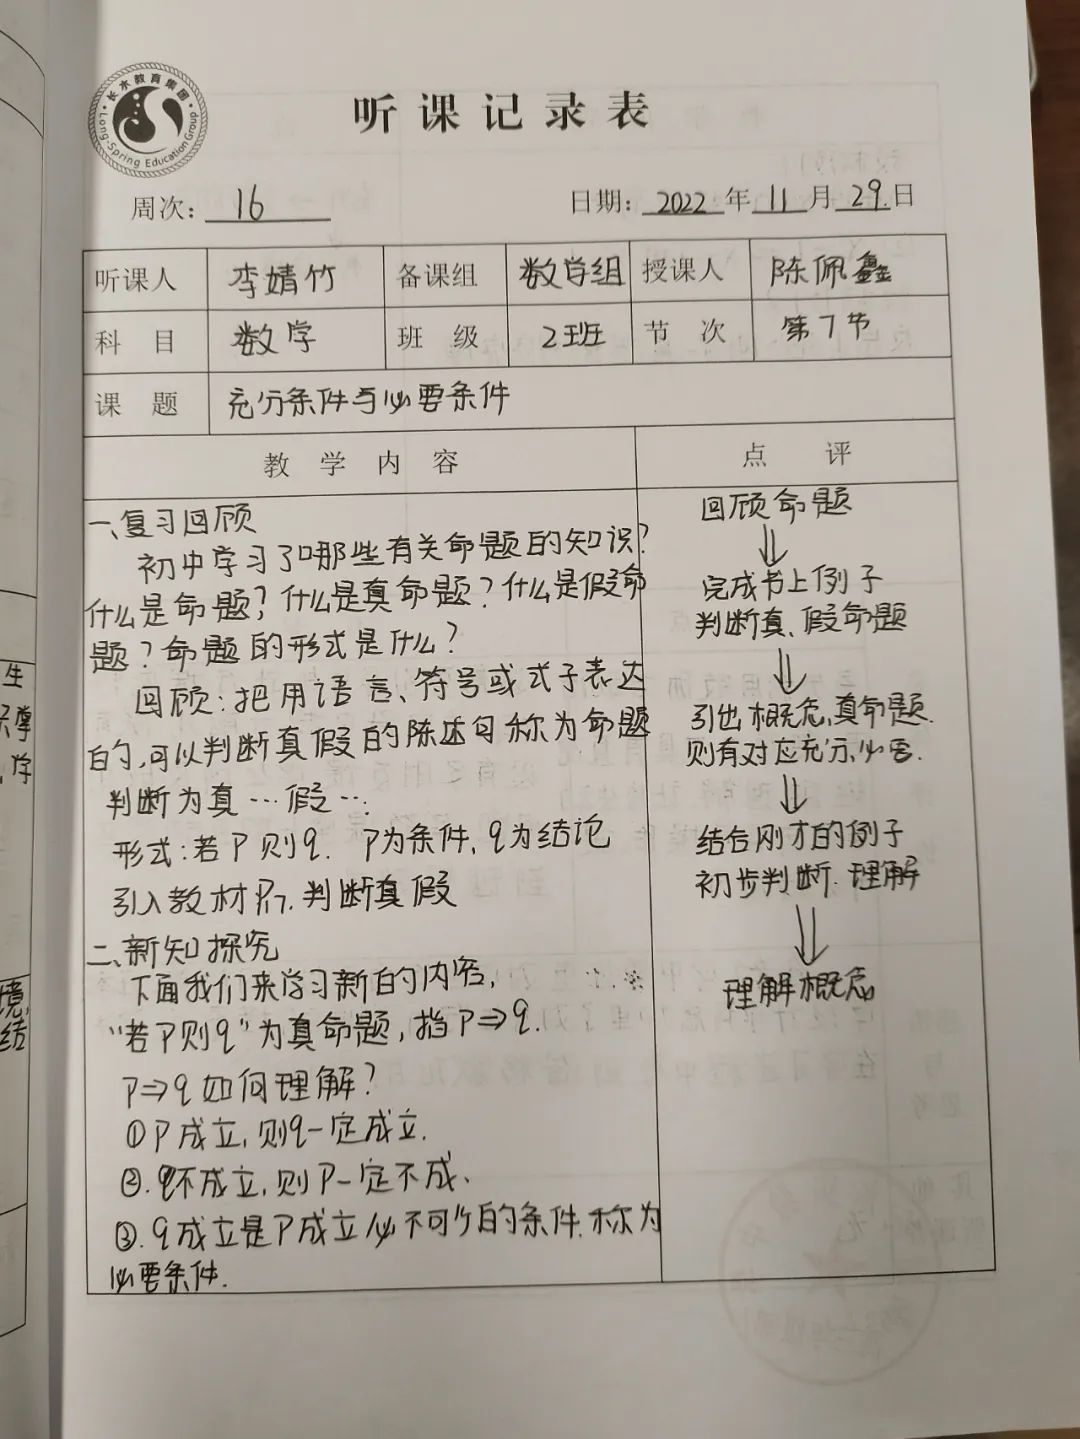 长水教育集团
Long-Spring Education Group
听课记录表
周次: 16 日期: 2022 年 11 月 29. 日
听课人 李婧竹 备课组 数学组 授课人 陈佩鑫
科目 数学 班级 2班 节次 第7节
课题 充分条件与必要条件
教学内容 点评
一、复习回顾
初中学习了哪些有关命题的知识?
什么是命题? 什么是真命题? 什么是假命
题? 命题的形式是什么?
回顾: 把用语言、符号或式子表达
的,可以判断真假的陈述句称为命题
判断为真…假…
形式: 若P则q. P为条件, q为结论
引入教材P17. 判断真假
二、新知探究
下面我们来学习新的内容,
“若P则q”为真命题, 指P⇒q.
P⇒q 如何理解?
①P成立, 则q一定成立.
②.q不成立, 则P一定不成、
③.q成立是P成立必不可少的条件. 称为
必要条件.
回顾命题
⇓
完成书上例子
判断真、假命题
⇓
引出概念, 真命题.
则有对应充分,必要.
⇓
结合刚才的例子
初步判断. 理解
⇓
理解概念
生
学
境,
结